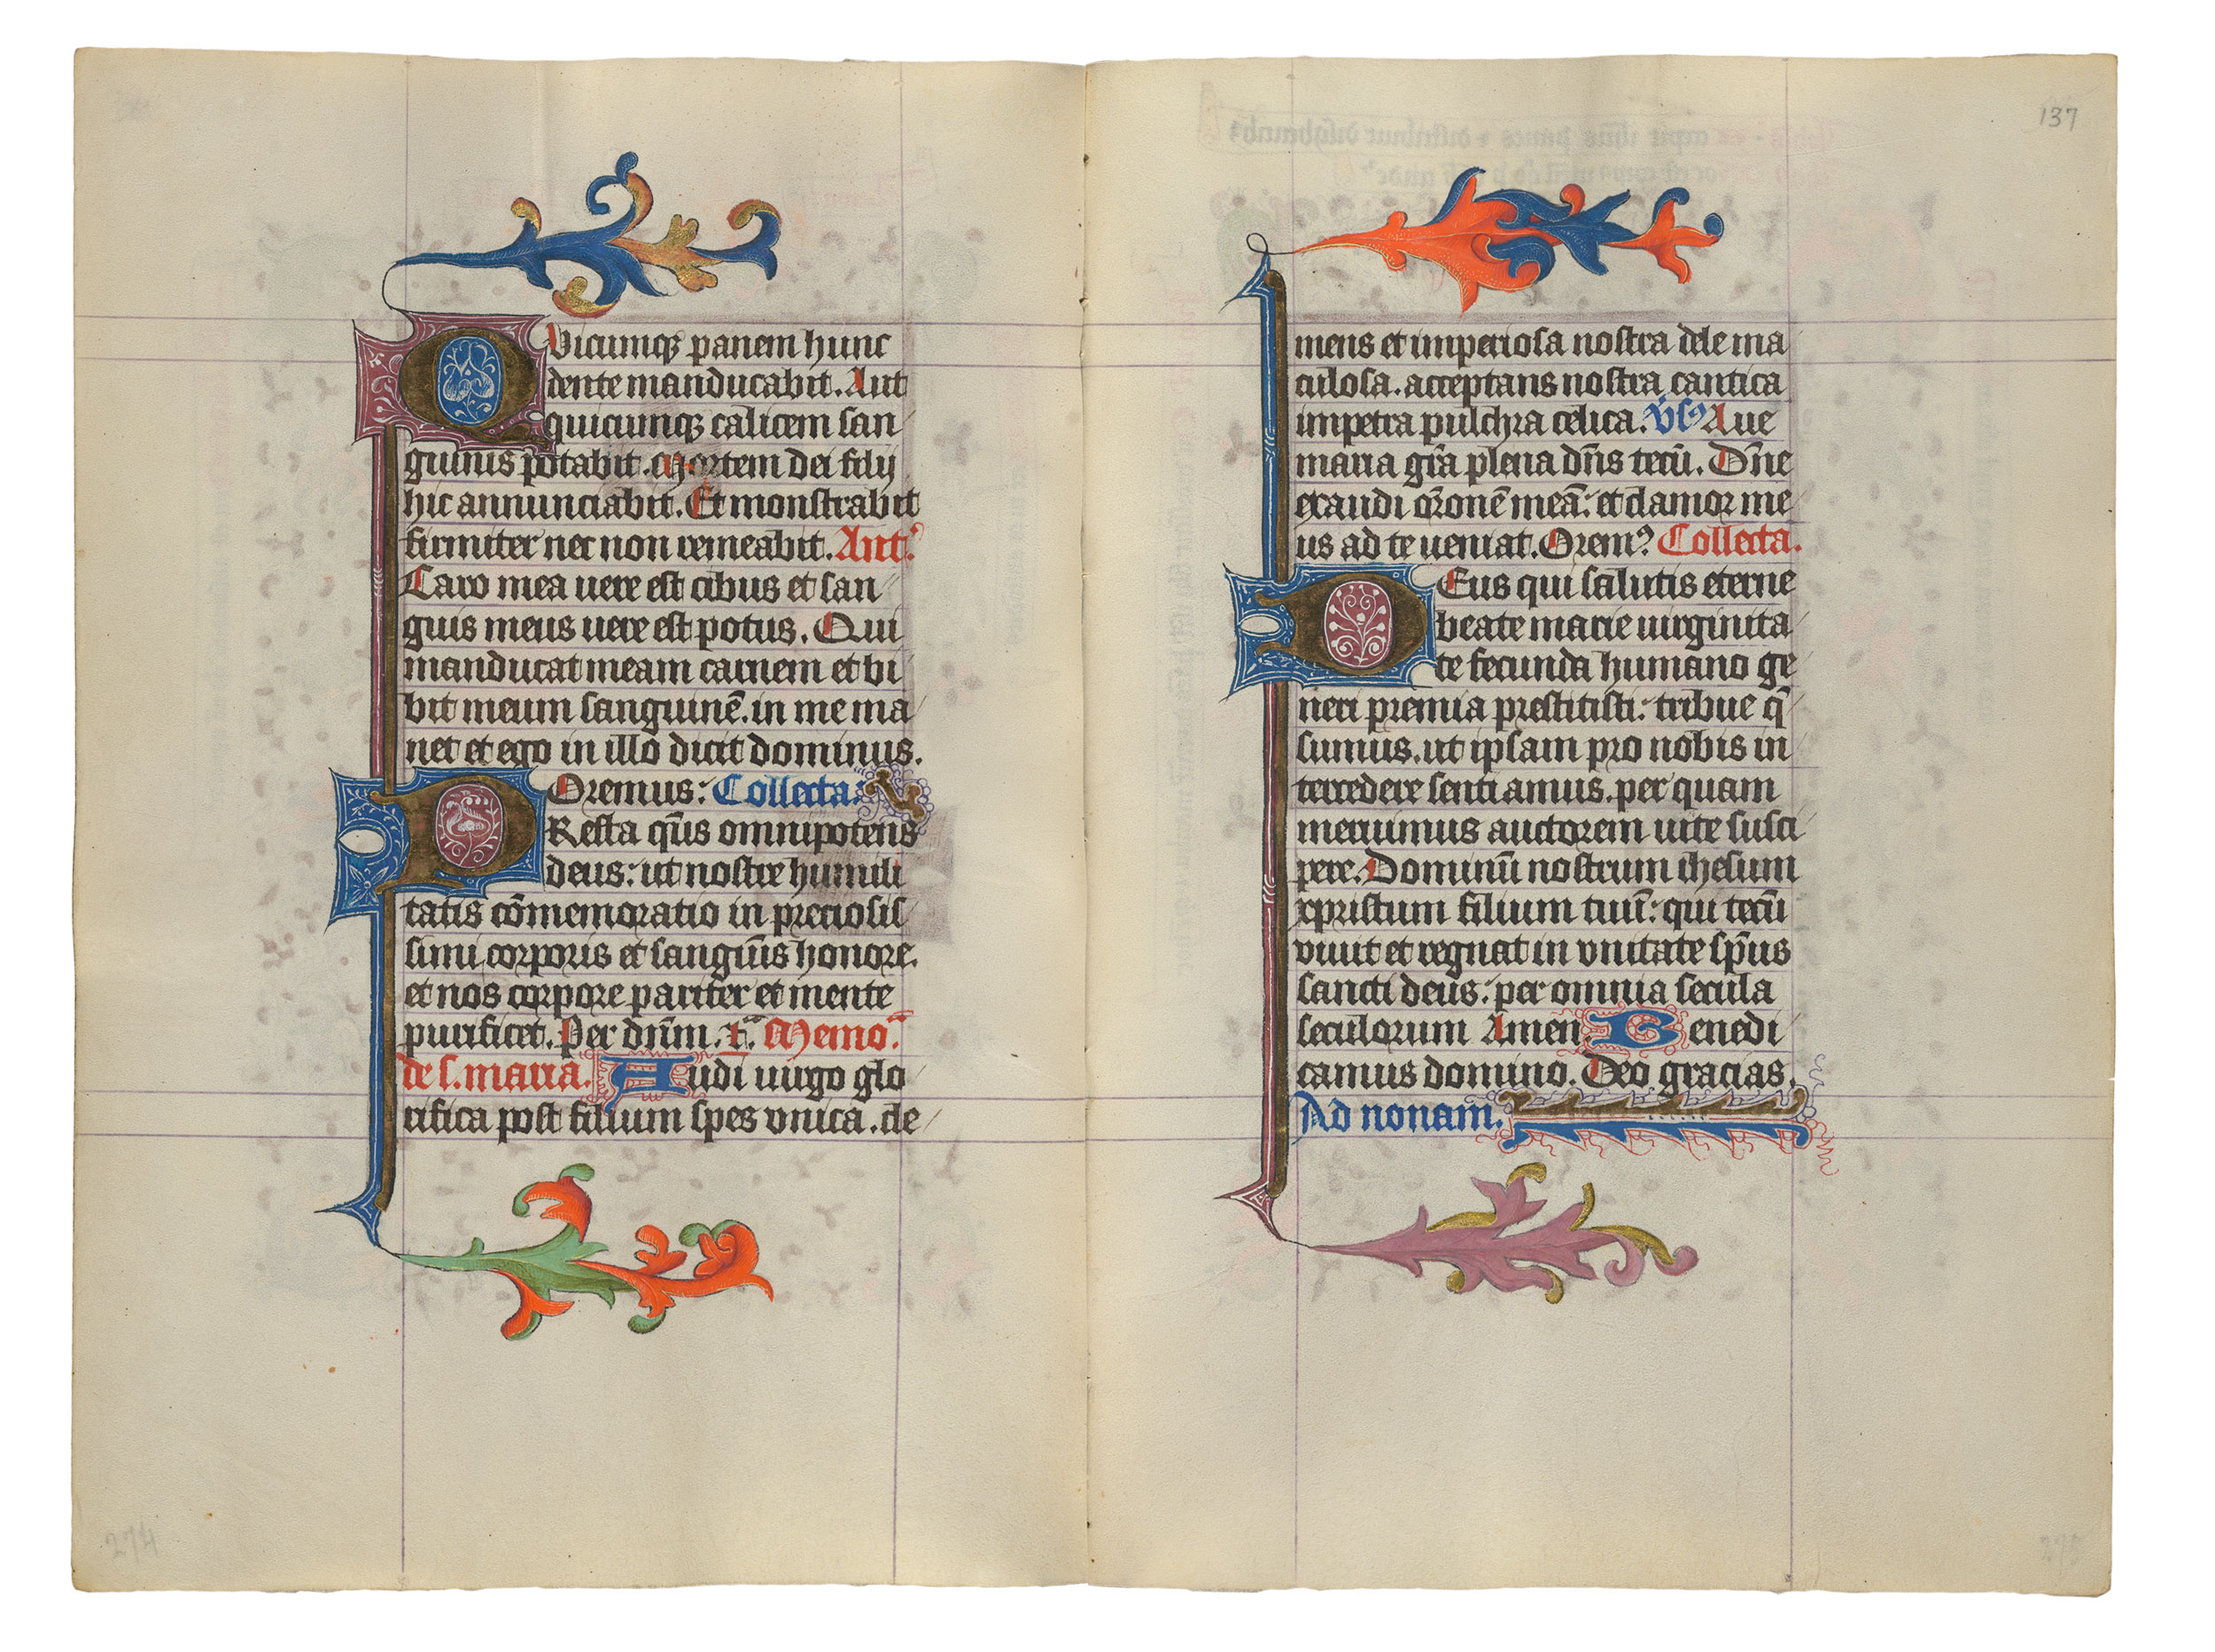 Quicumqꝫ panem hunc
dente manducabit. Aut
quicumqꝫ calicem san
guinis potabit. Mortem dei filij
hic annunciabit. Et monstrabit
firmiter nec non remeabit. Ant.
Caro mea uere est cibus et san
guis meus uere est potus. Qui
manducat meam carnem et bi
bit meum sanguinē. in me ma
net et ego in illo dicit dominus.
Oremus: Collecta.
PResta qs̄ omnipotens
deus: ut nostre humili
tatis cōmemoratio in preciosis
simi corporis et sanguīs honore.
et nos corpore pariter et mente
purificet. Per dnm̄. Memo.
de s. maria. Audi uirgo glo
rifica post filium spes vnica. de
274
137
mens et imperiosa nostra dele ma
culosa. acceptans nostra cantica
impetra pulchra celica. Vs Aue
maria grā plena dn̄s tecū. Dn̄e
exaudi orōnē meā: et clamor me
us ad te ueniat. Orem. Collecta.
DEus qui salutis eterne
beate marie uirginita
te fecunda humano ge
neri premia prestitisti: tribue q̄
sumus. ut ipsam pro nobis in
tercedere sentiamus. per quam
meruimus auctorem uite susci
pere. Dominū nostrum ihesum
xpristum filium tuū: qui tecū
viuit et regnat in vnitate spūs
sancti deus: per omnia secula
seculorum Amen. Benedi
camus domino. Deo gracias.
Ad nonam.
275